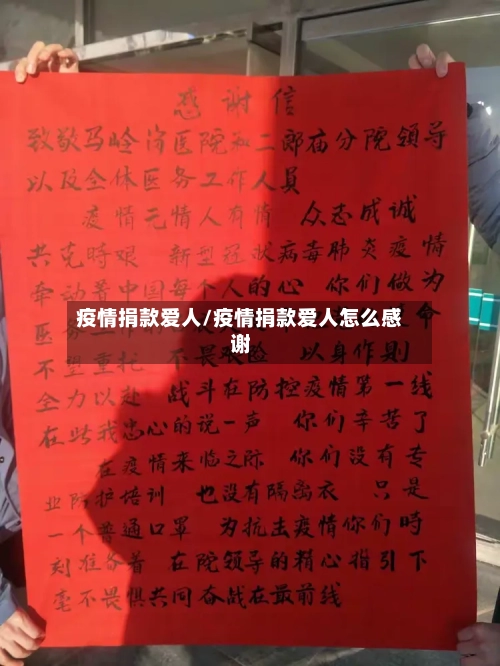 感谢信
致敬马岭岗医院和二郎庙分院领导
以及全体医务工作人员
疫情无情人有情 众志成诚
共克時艰 新型冠状病毒肺炎疫情
牵动着中国每个人的心 你们做为
医务
疫情捐款爱人/疫情捐款爱人怎么感
谢
命
不望重托 不畏艰险 以身作则
全力以赴 战斗在防控疫情第一线
在此我忠心的说一声 你们辛苦了
在疫情来临之际 你们没有专
业防护培训 也没有隔离衣 只是
一个普通口罩 为抗击疫情你们時
刻准备着 在院领导的精心指引下
毫不畏惧共同奋战在最前线